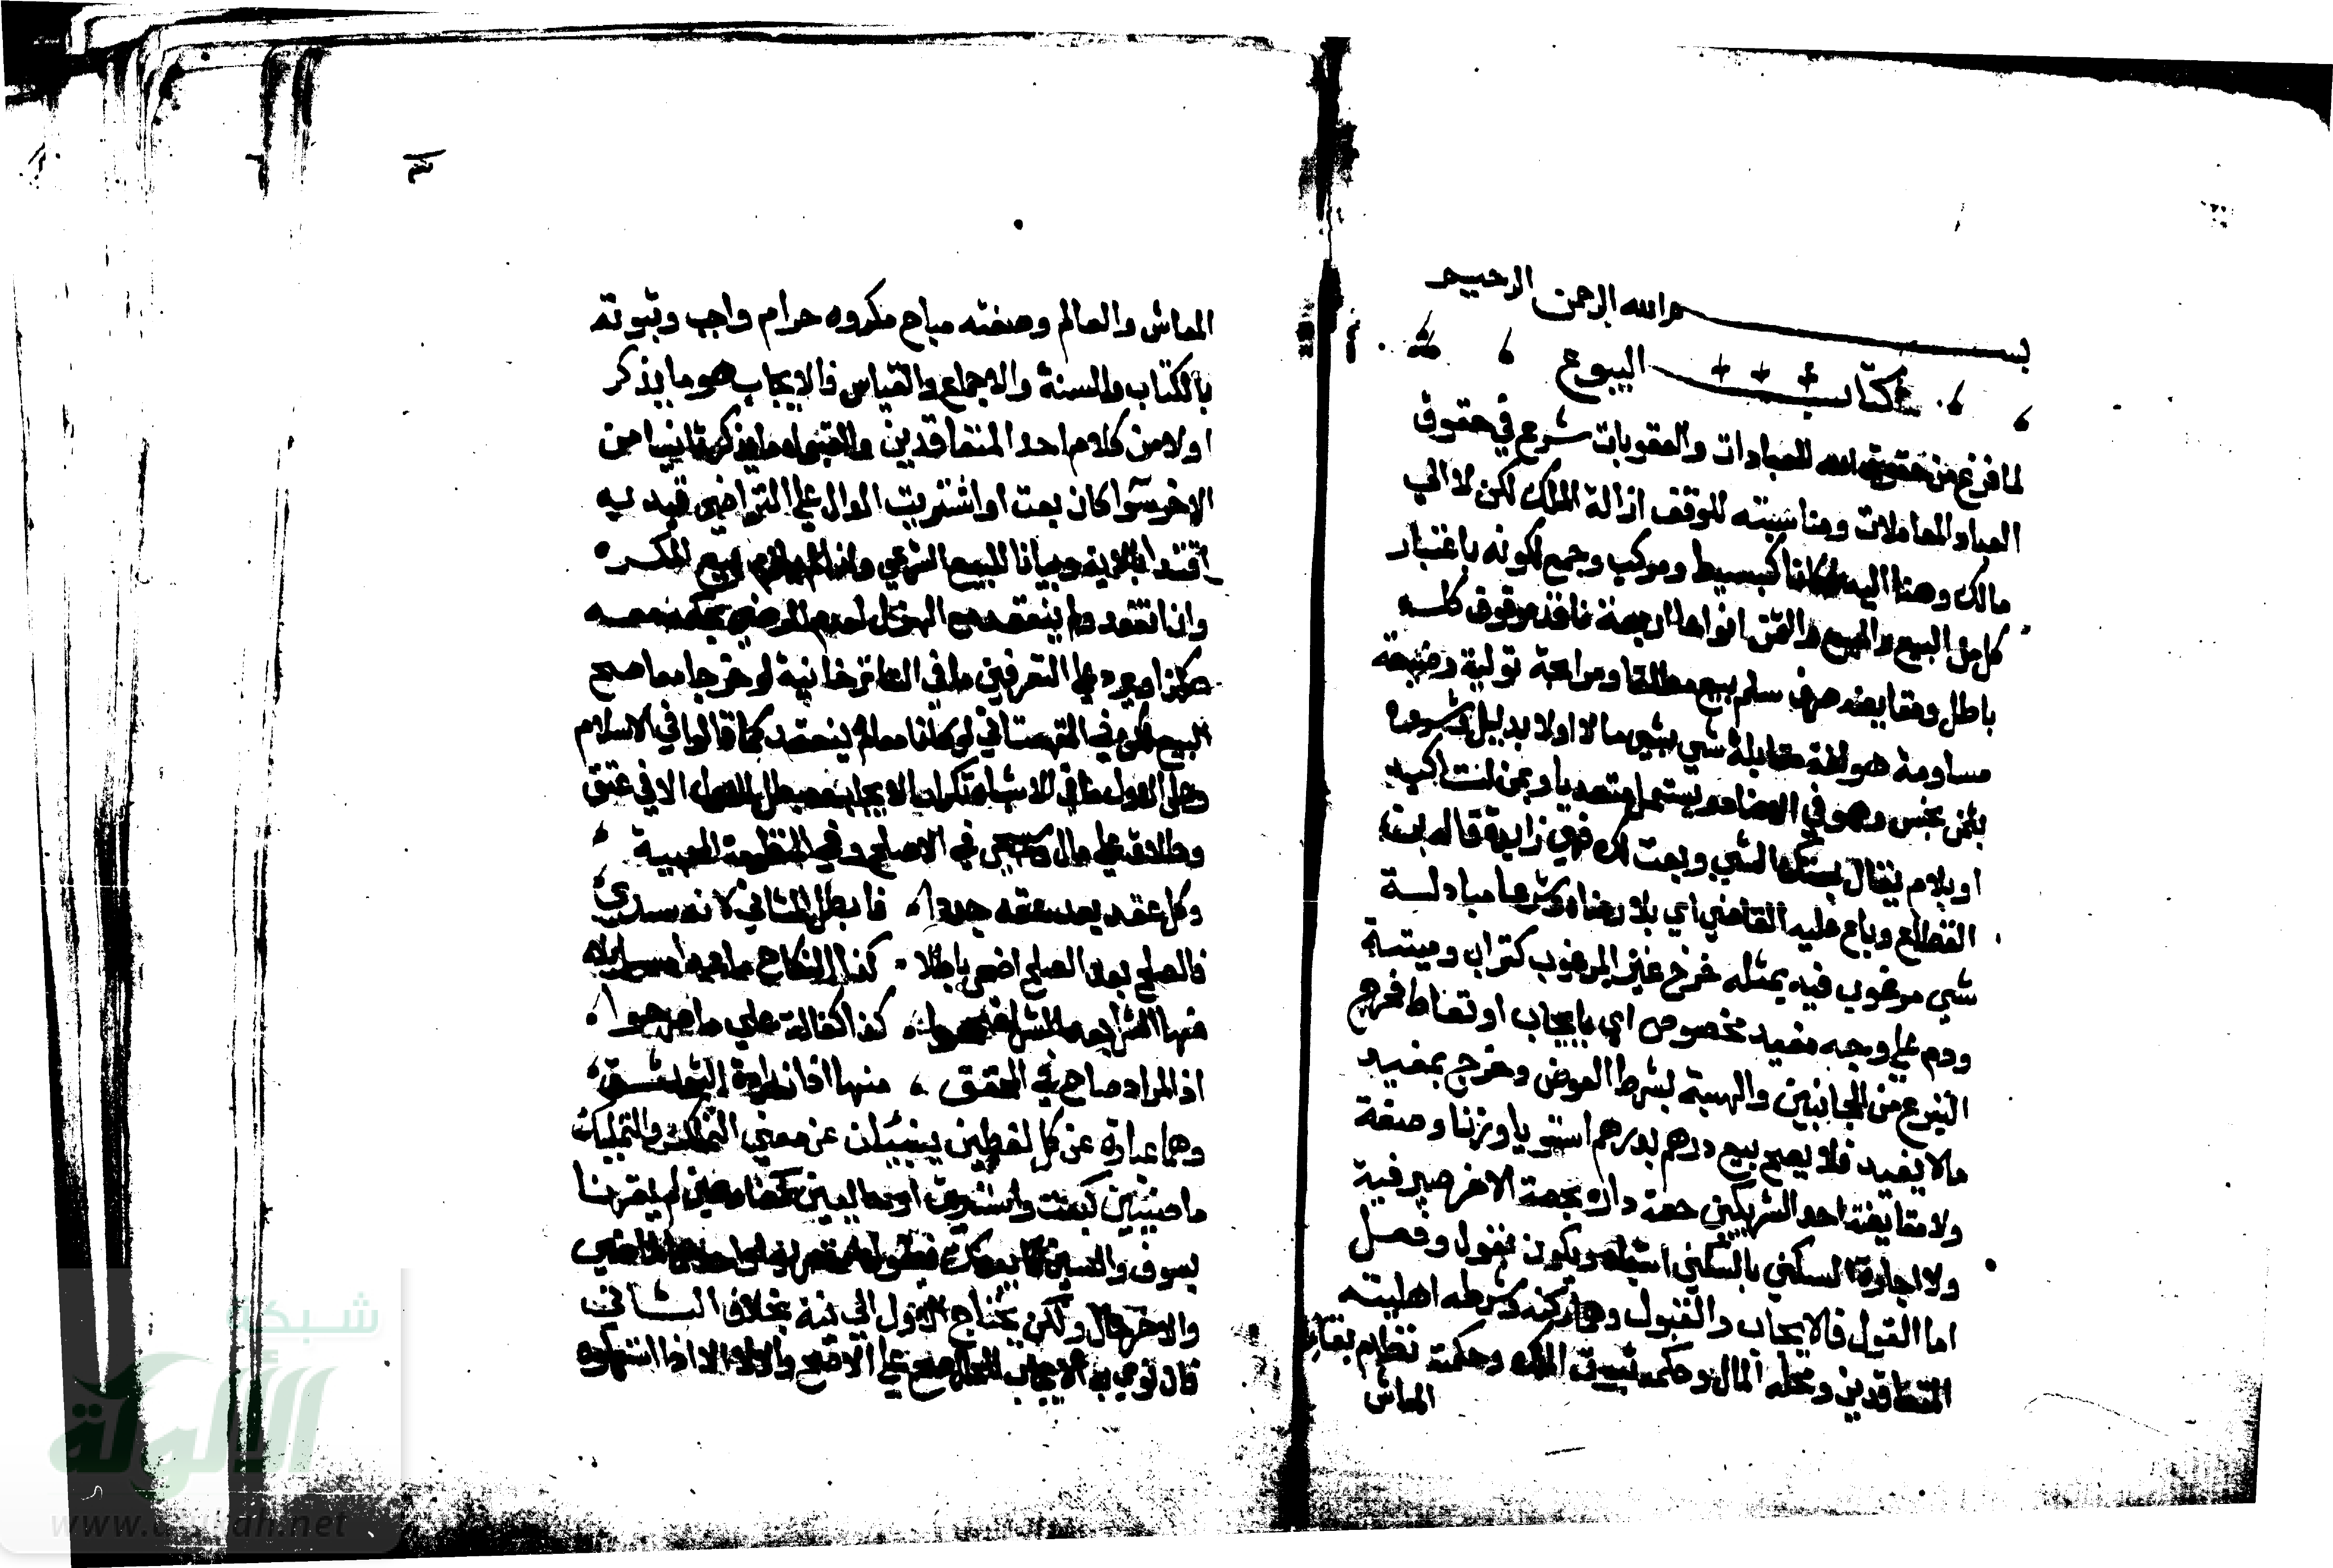 بسم الله الرحمن الرحيم
كتاب البيوع
لما فرغ من حقوق الله العبادات والعقوبات شرع في حقوق
العباد المعاملات ومناسبته للوقف ازالة الملك لكن لا الي
مالك وهنا اليه فكانا كبسيط ومركب وجمع لكونه باعتبار
كل من البيع والمبيع والثمن انواعا اربعة نافذ موقوف
باطل ومقايضه صرف سلم بيع مطلقا ومرابحة تولية وضيعة
مساومة هو لغة مقابلة شي بشي مالا اولا بدليل وشروه
بثمن بخس وهو يستعمل متعديا وبمن
او بلام يقال بعتك الشي وبعت لك فهي زايدة قاله بن
القطاع وباع عليه القاضي اي بلا رضاه وشرعا مبادلة
شي مرغوب فيه بمثله خرج غير المرغوب كتراب وميتة
ودم علي وجه مفيد مخصوص اي بايجاب او تعاط فخرج
التبرع من الجانبين والهبة بشرط العوض وخرج بمفيد
مالا يفيد فلا يصح بيع درهم بدرهم استويا وزنا وصفة
ولا مقايضة احد الشريكين حصة داره بحصة الاخر صيرفية
ولا اجارة السكني بالسكني اشباه ويكون بقول وفعل
اما القول فالايجاب والقبول وهما ركنه وشرطه اهليته
المتعاقدين ومحله المال وحكمه ثبوت الملك وحكمته نظام بقاء
المعاش
المعاش والعالم وصفته مباح مكروه حرام واجب وثبوته
بالكتاب والسنة والاجماع والقياس فالايجاب هو ما يذكر
اولا من كلام احد المتعاقدين والقبول ما يذكر ثانيا من
الاخر سوا كان بعت او اشتريت الدال علي التراضي قيد به
اقتدا بالاية وبيانا للبيع الشرعي بيع المكره
وان انعقد ولم ينعقد مع الهزل لعدم الرضي بحكمه معه
هذا ويرد علي التعريفين ما في التاترخانية لو خرجا معا صح
البيع لكن في القهستاني لو كانا معا لم ينعقد كما قالوا في السلام
وعلي الاول ما في الاشباه تكرار الايجاب مبطل للاول الا في عتق
وطلاق علي مال وسيجي في الصلح وفي المنظومة المحبية
وكل عقد بعد عقد جددا فابطل الثاني لانه سدي
فالصلح بعد الصلح اضحي باطلا كذا النكاح ما عدا مسايلا
منها الشرا بعد الشرا كذا كفالة علي ما صرحوا
اذ المراد صاح في المحقق منها اذا زيادة التوثق
وهما عبارة عن كل لفظين ينبئان عن معني التملك والتمليك
ماضيين كبعت واشتريت او حاليين كمضارعين لم يقرنا
بسوف والسين كابيعك
والاخر حال ولكن يحتاج الاول الي نية بخلاف الثاني
فان نوي به الايجاب للحال صح علي الاصح والا لا الا اذا